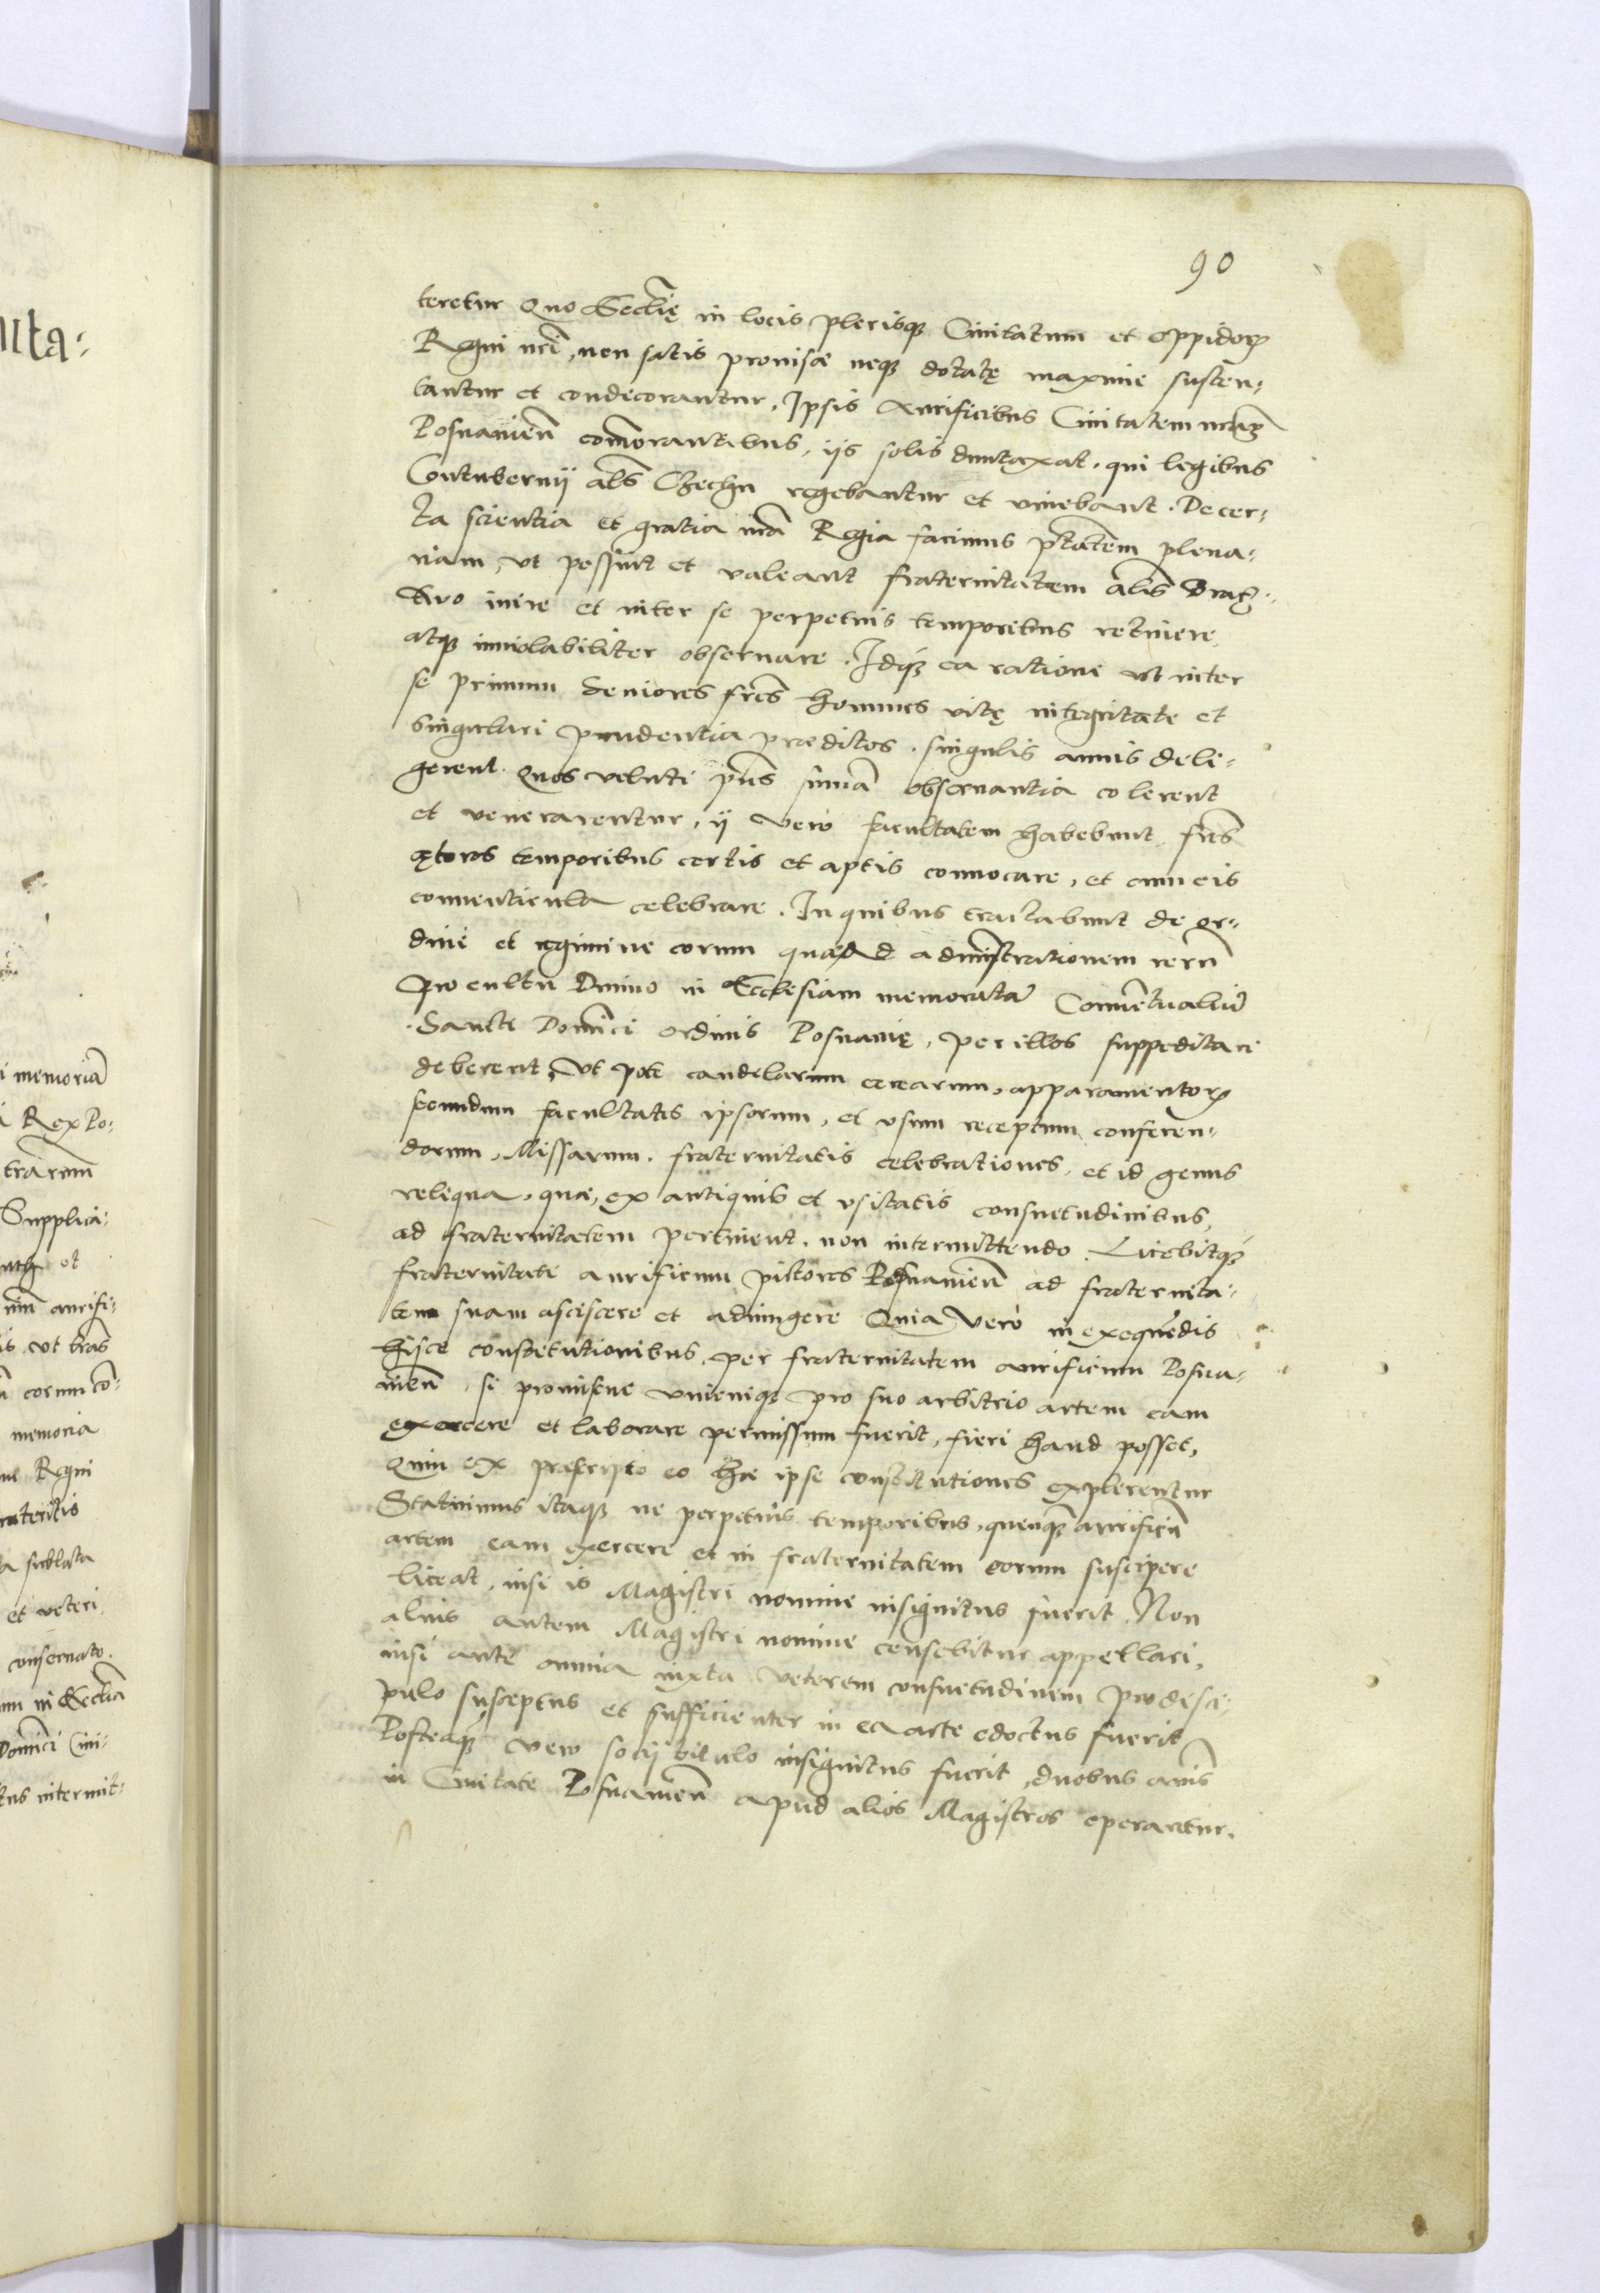 90
teretur Quo Ecclię in locis plerisq Ciuitatum et oppidoꝝ
Regni nrī, non satis prouisæ neq dotatę maxime susten-
tantur et condecorantur, Ipsis Aurificibus Ciuitatem nrām
Posnanień comorantibus, ijs solis duntaxat, qui legibus
Contubernij als Czechu regebantur et viuebant. De cer-
ta scientia et gratia nrā Regia facimus ptātem plena-
riam, vt possint et valeant fraternitatem als Bracz-
two inire et inter se perpetuis temporibus retinere
atq inuiolabiliter obseruare. Idq ea ratione vt inter
se primum Seniores frēs homines vitę integritate et
singulari prudentia præditos, singulis annis deli-
gerent. Quos veluti pñs sumā obseruantia colerent
et venerarentur, ij vero facultatem habebunt frēs
cętoros temporibus certis et aptis conuocare, et cum eis
conuenticula celebrare. In quibus tractabunt de or-
dine et regimine eorum quæ ad administrationem rerū
pro cultu Diuino in Ecclesiam memoratā Conuētualiū
Sancti Domīci ordinis Posnanię, per illos suppeditari
deberent, Vt pote candelarum cerearum, apparamentoꝝ
secundum facultates ipsorum, et vsum receptum conferen-
dorum, Missarum, fraternitatis celebrationes, et id genus
reliqua, quæ, ex antiquis et vsitatis consuetudinibus,
ad fraternitatem pertinent, non intermittendo. Licebitq
fraternitati aurificum pictores Posnanień ad fraternita-
tem suam asciscere et adiungere Quia vero in exequēdis
hijsce constitutionibus, per fraternitatem aurificum Posna-
nień, si promiscue vnicuiq pro suo arbitrio artem eam
exercere et laborare permissum fuerit, fieri haud posset,
Quin ex præscripto eo hæ ipse constitutiones explerentur
Statuimus itaq ne perpetuis temporibus, quenq aurificū
artem eam exercere et in fraternitatem eorum suscipere
liceat, nisi is Magistri nomine insignitus fuerit. Non
alius autem Magistri nomine censebitur appellari,
nisi ante omnia iuxta veterem consuetudinem pro disci-
pulo susceptus et sufficienter in ea arte edoctus fuerit
Posteaq vero socij titulo insignitus fuerit, duobus anis
in Ciuitate Posnanień apud alios Magistros operaretur.